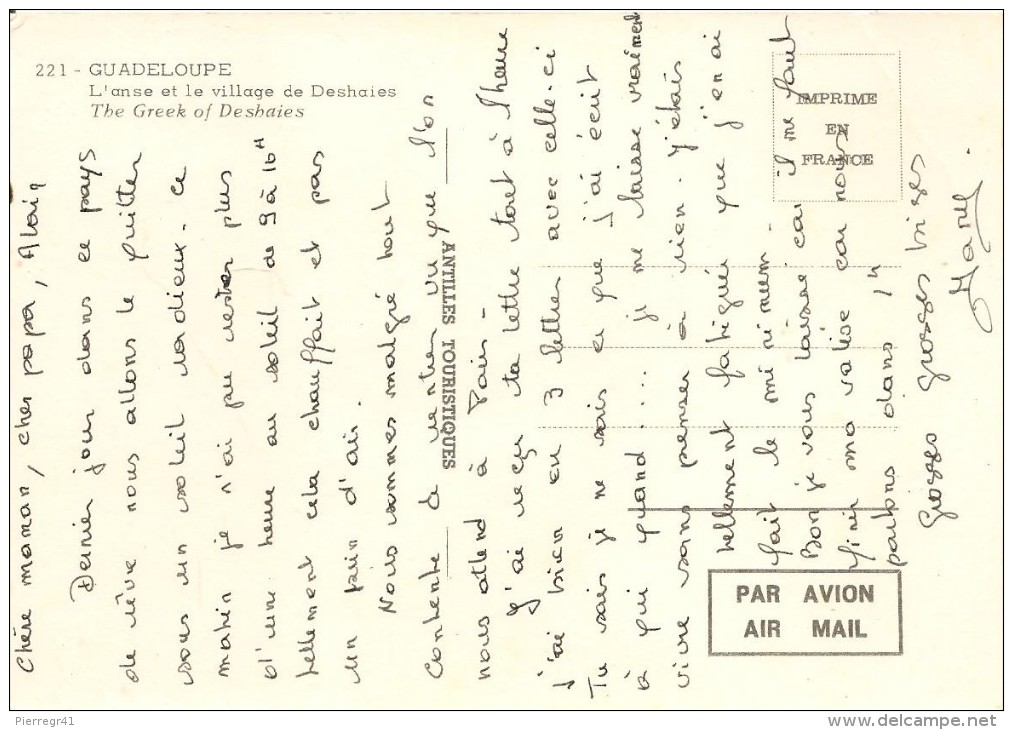 221 - GUADELOUPE
L'anse et le village de Deshaies
The Greek of Deshaies
IMPRIME
EN
FRANCE
ANTILLES TOURISTIQUES
PAR AVION
AIR MAIL
Chère maman, cher papa, Alain
Dernier jour dans ce pays
de rêve nous allons le quitter
sous un soleil radieux. Ce
matin je n'ai pu rester plus
d'une heure au soleil de 9 à 10H
tellement cela chauffait et pas
un brin d'air.
Nous sommes malgré tout
contente de rentrer vu que l'on
nous attend à Paris -
J'ai reçu ta lettre tout à l'heure
j'ai bien eu 3 lettres avec celle-ci
Tu sais je ne sais ce que j'ai écrit
à qui quand .... je me laisse vraiment
vivre sans penser à rien. J'étais
tellement fatiguée que j'en ai
fait le mimimum.
Bon je vous laisse car il me faut
finir ma valise car nous
partons dans 1H
Grosses grosses bises
Pierregr41
www.delcampe.net